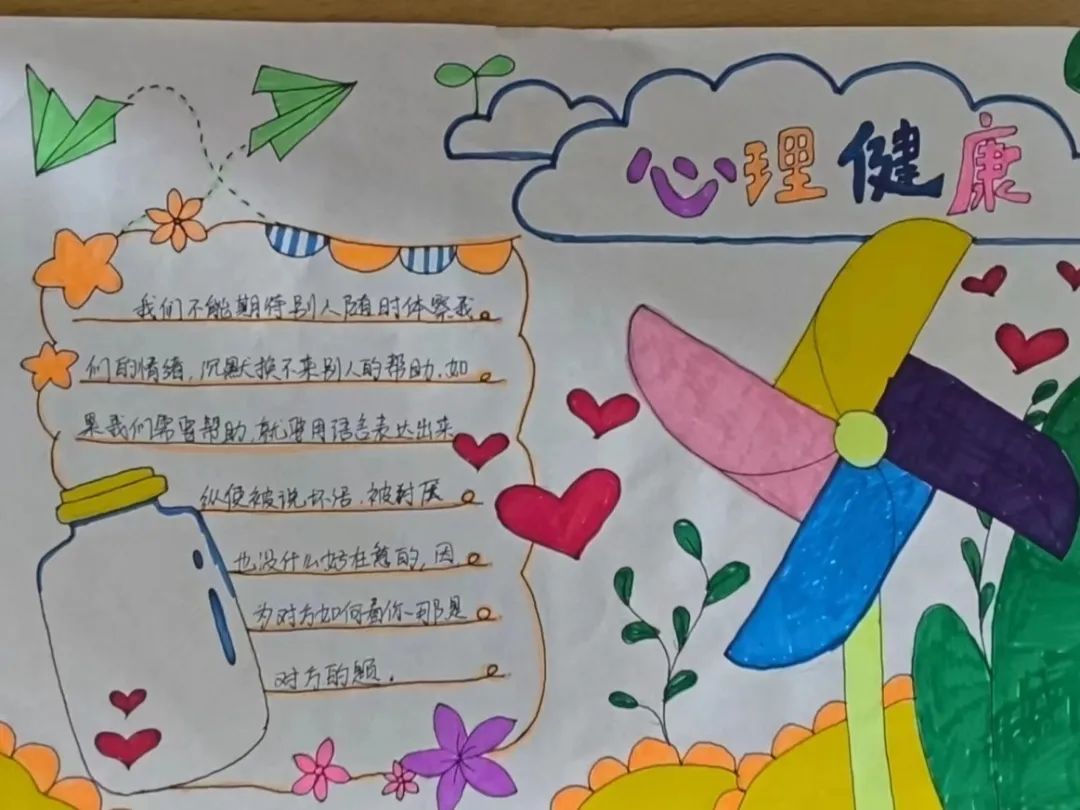 心理健康
我们不能期待别人随时体察我
们的情绪,沉默换不来别人的帮助,如
果我们需要帮助,就要用语言表达出来
纵使被说坏话,被讨厌
也没什么好在意的,因
为对方如何看你-那是
对方的题.